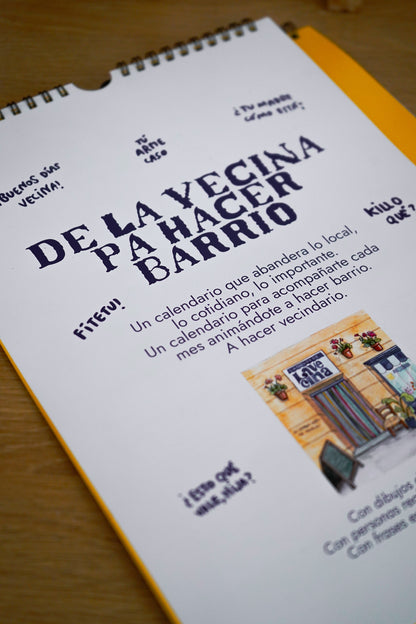 ¿TU MADRE
CÓMO ESTÁ?
TÚ
ARTE
CASO
¡BUENOS DÍAS
VECINA!
DE LA VECINA
PA HACER
BARRIO
KILLO
QUÉ?
FITETU!
Un calendario que abandera lo local,
lo cotidiano, lo importante.
Un calendario para acompañarte cada
mes animándote a hacer barrio.
A hacer vecindario.
La ve
cina
¿ESTO QUÉ
VALE, HIJA?
Con dibujos
Con personas
Con frases